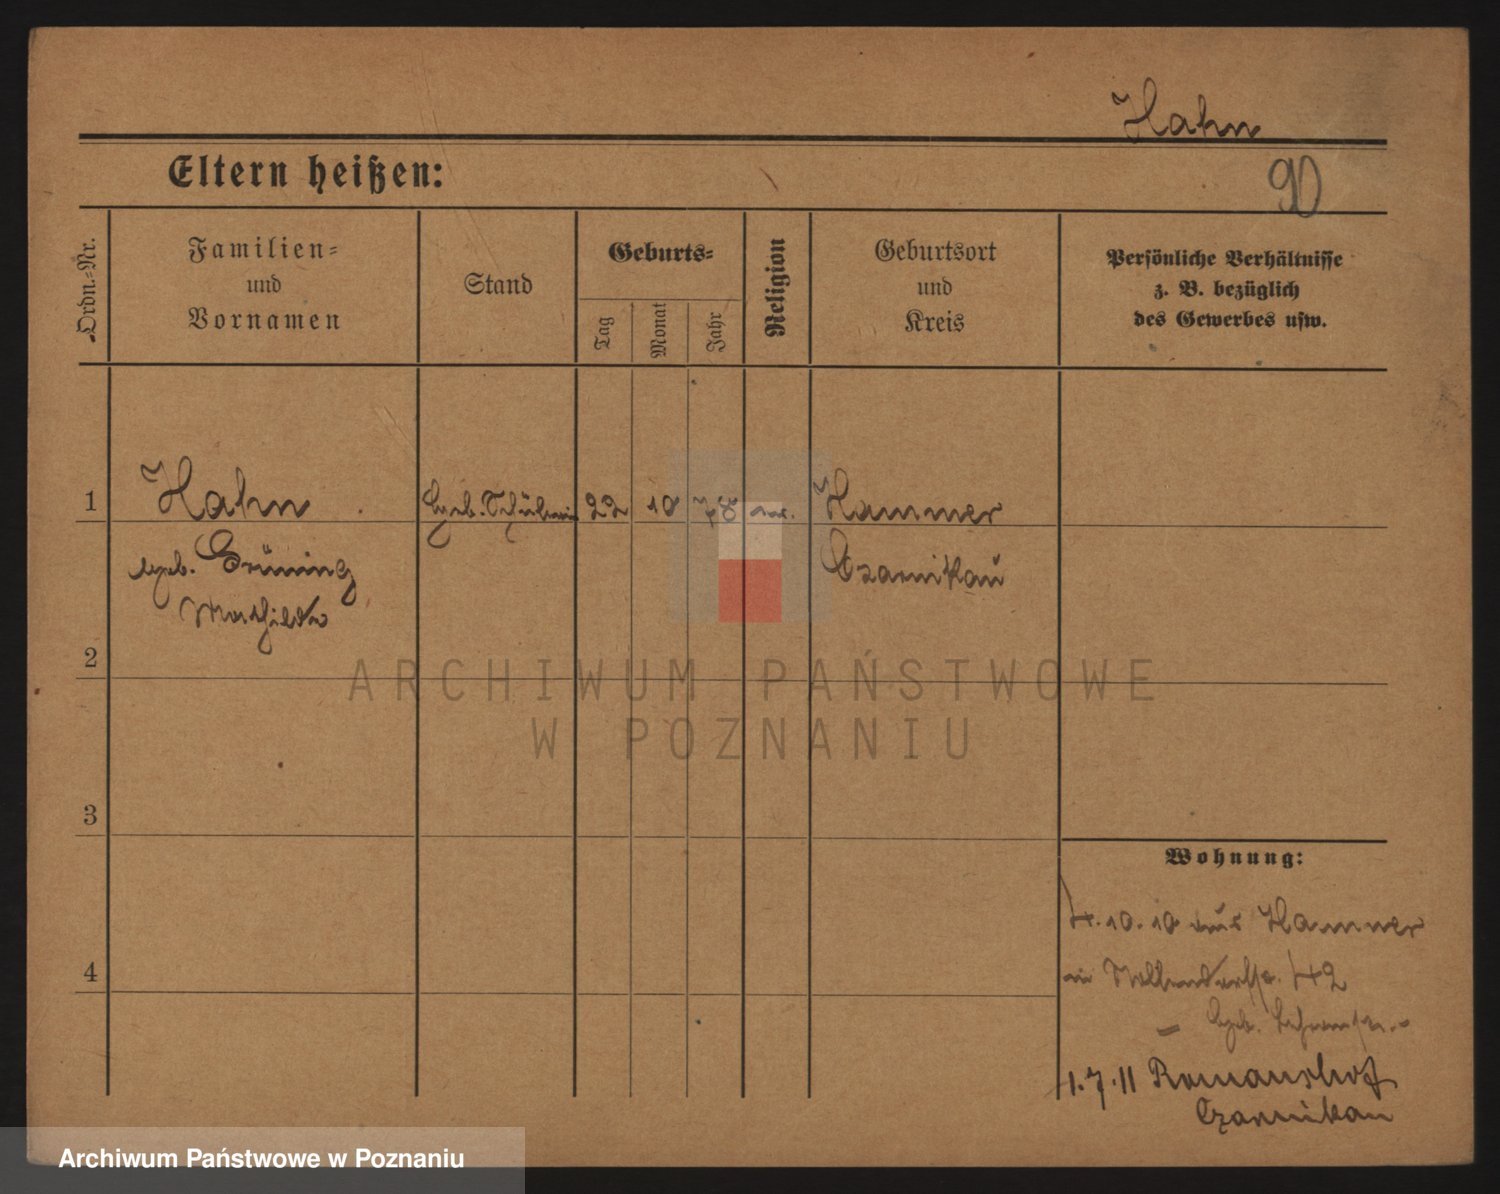 Hahn
Eltern heißen:
90
Ordn.-Nr.
Familien-
und
Vornamen
Stand
Geburts-
Tag
Monat
Jahr
Religion
Geburtsort
und
Kreis
Persönliche Verhältnisse
z. B. bezüglich
des Gewerbes usw.
1
Hahn
Geb. Schülerin
22
10
78
ev.
Hammer
geb. Grüning
Czarnikau
Mathilde
2
ARCHIWUM PAŃSTWOWE
W POZNANIU
3
Wohnung:
4.10.10 aus Hammer
4
42
Geb.
1.7.11 Romanshof
Czarnikau
Archiwum Państwowe w Poznaniu